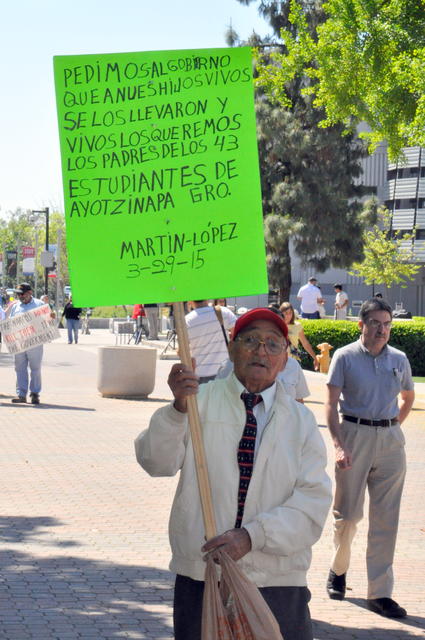 PEDIMOS AL GOBIRNO
QUE ANUESHIJOS VIVOS
SE LOS LLEVARON Y
VIVOS LOS QUEREMOS
LOS PADRES DE LOS 43
ESTUDIANTES DE
AYOTZINAPA GRO.
MARTIN-LÓPEZ
3-29-15